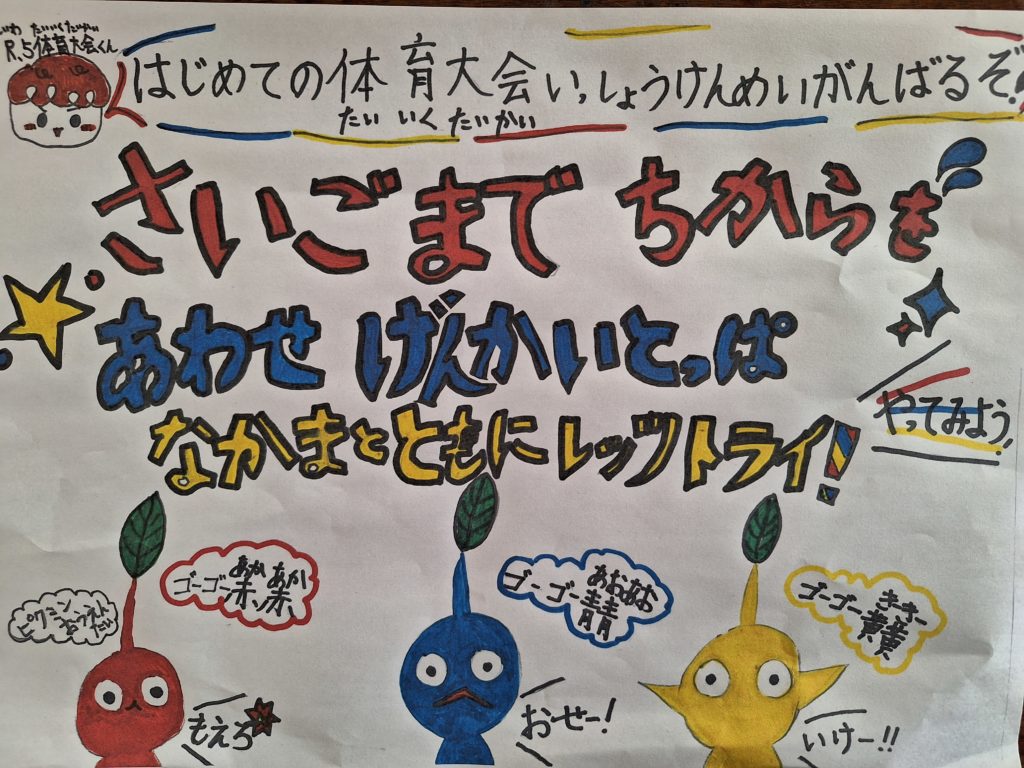 れいわ たいいくたいかい
R.5体育大会くん
はじめての体育大会いっしょうけんめいがんばるぞ!
たいいくたいかい
さいごまで ちからを
あわせ げんかいとっぱ
なかまとともにレッツトライ!
やってみよう!
ピクミン
おうえん
だい
ゴーゴー赤赤
あか あか
もえろ
ゴーゴー青青
あおあお
おせー!
ゴーゴー黄黄
きき
いけー!!